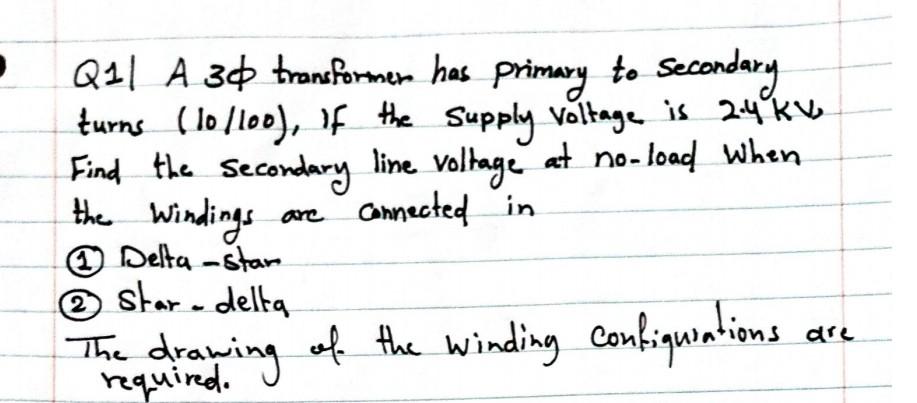 Q1| A 3ϕ transformer has primary to secondary
turns (10/100), If the supply voltage is 2.4 kV,
Find the secondary line voltage at no-load when
the windings are connected in
① Delta - star
② Star - delta
The drawing of the winding configurations are
required.